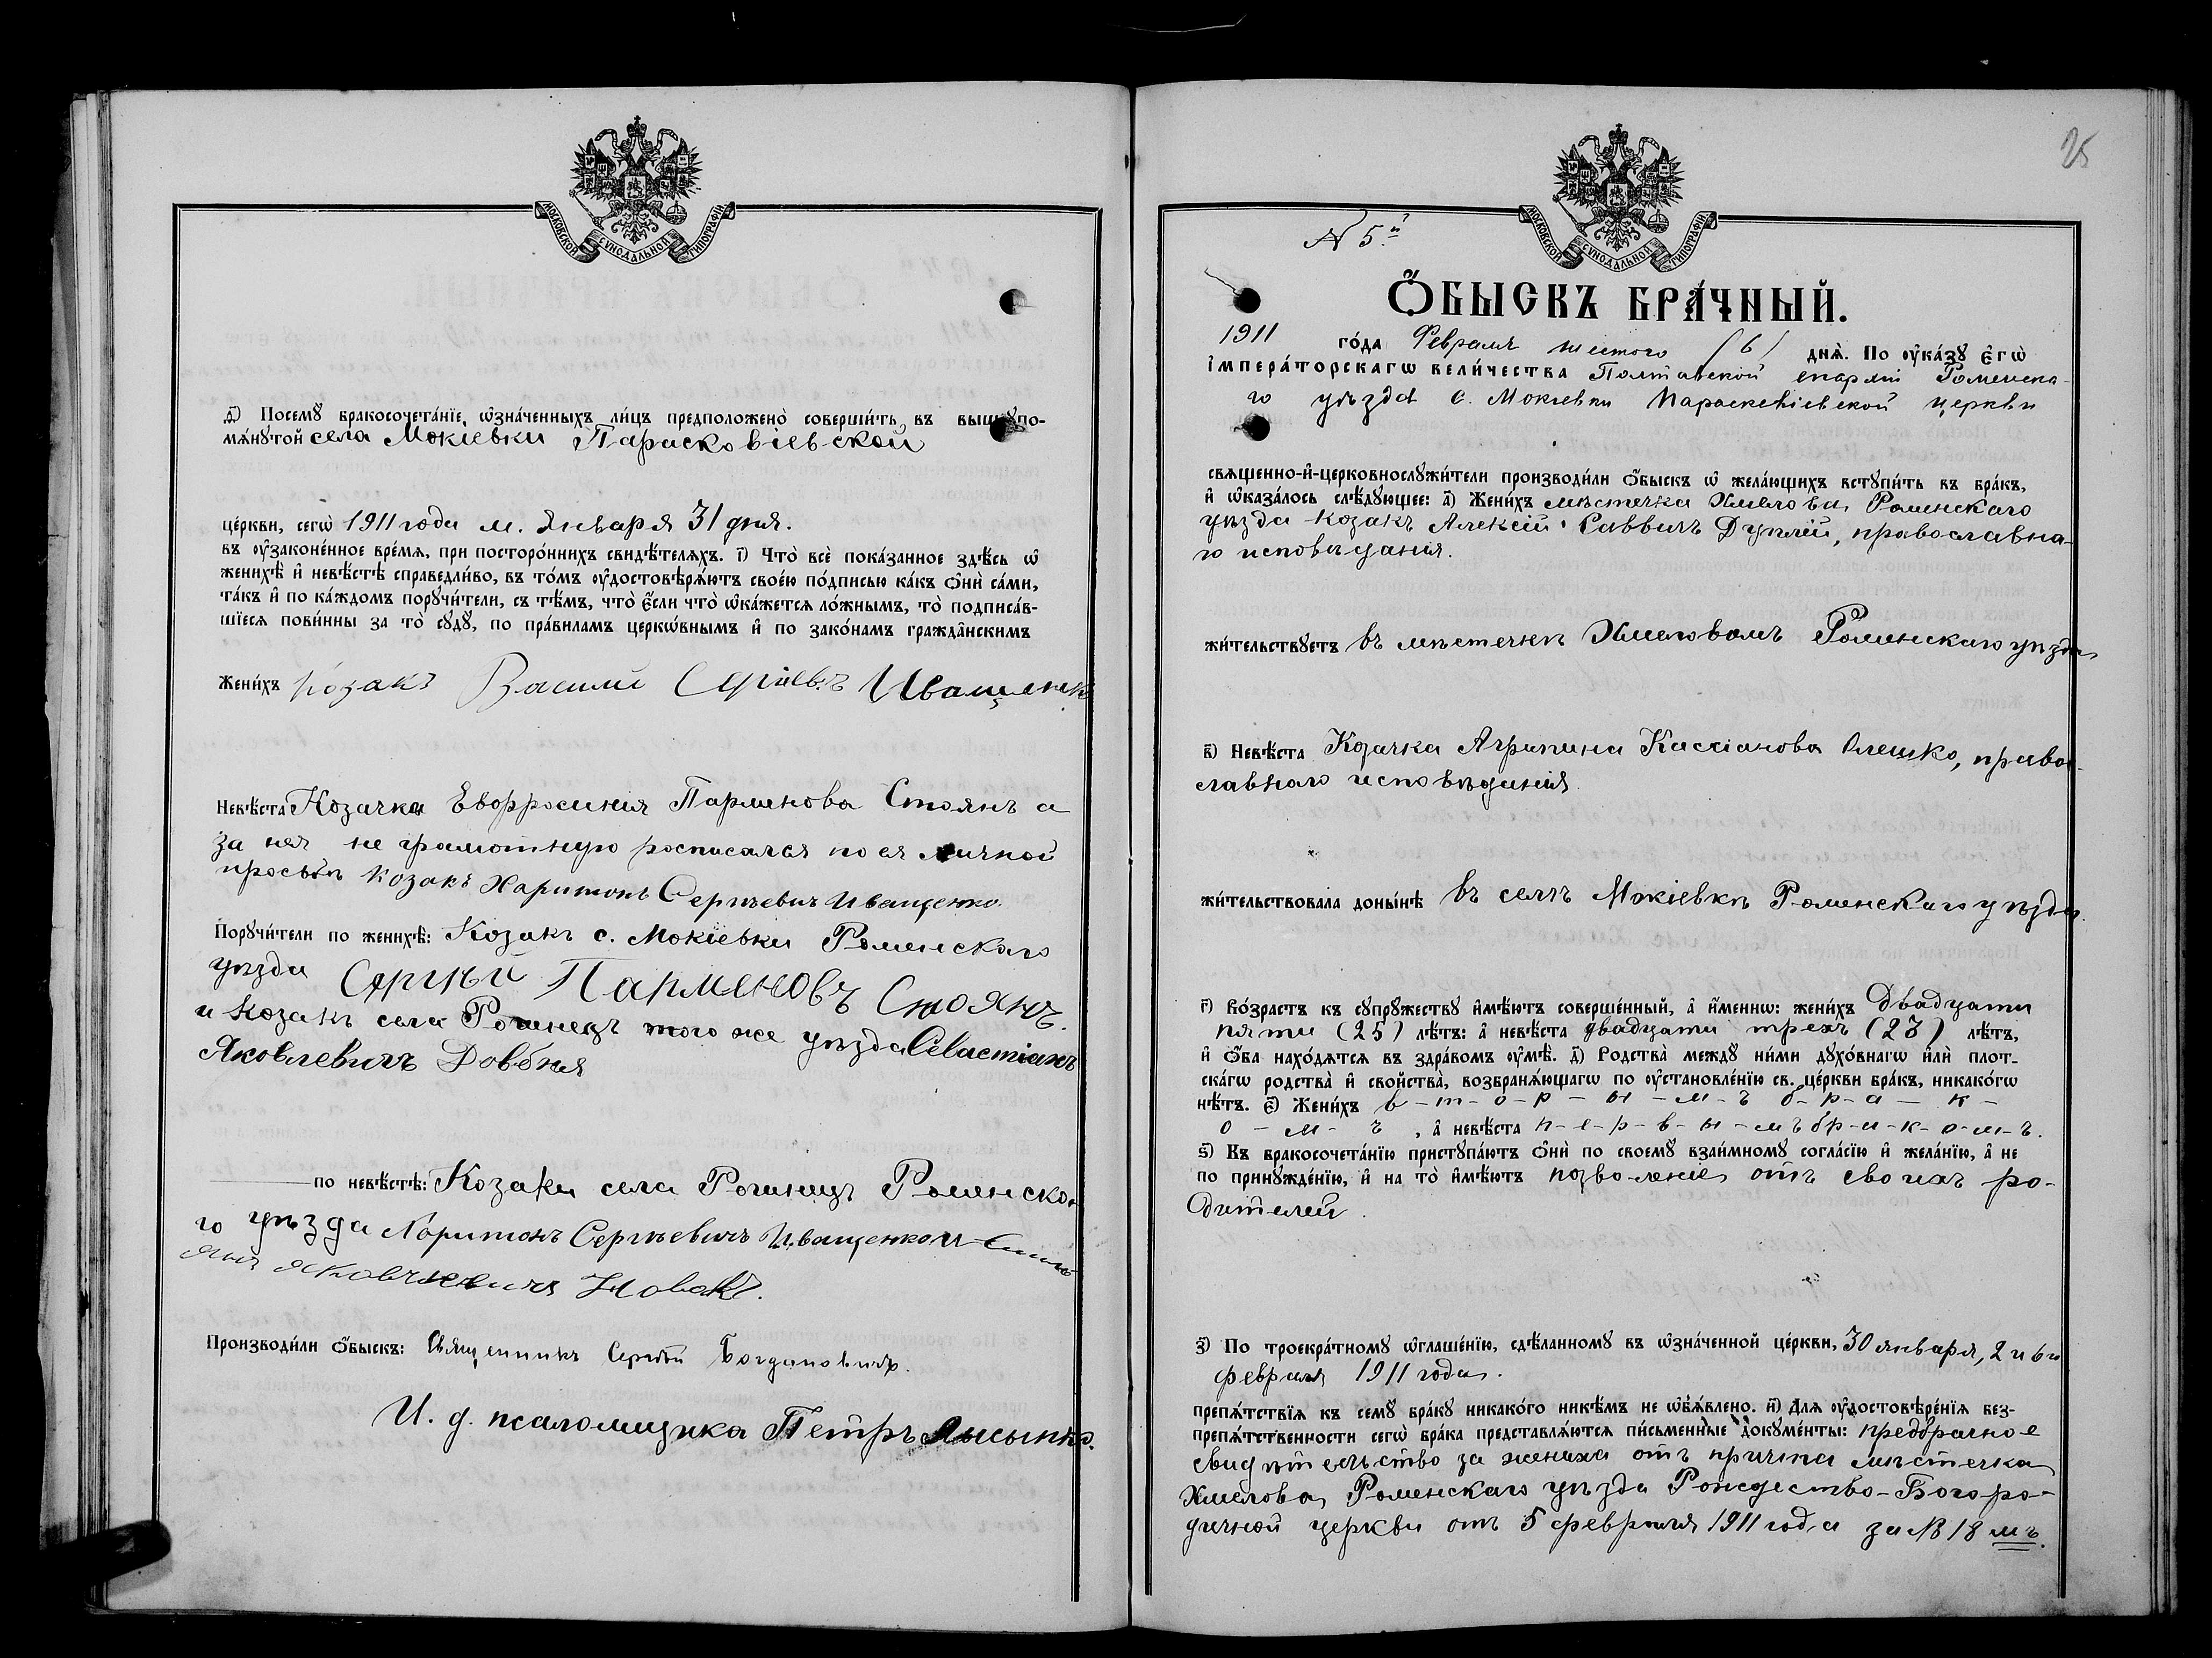 МОСКОВСКОЙ СѴНОДАЛЬНОЙ ТИПОГРАФІИ
д҃і) Посемꙋ̀ бракосочета́нїе, ѡ҆зна́ченныхъ ли́цъ предположено̀ соверши́ть, въ вышеꙋпо-
мѧ́нꙋтой села Мокіевки Парасковіевской
це́ркви, сегѡ̀ 1911 года м. Января 31 дня.
въ ᲂу҆законе́нное вре́мѧ, при посторо́ннихъ свидѣ́телѧхъ. і҃) Что̀ всѐ пока́занное здѣ́сь ѡ҆
женихѣ̀ и҆ невѣ́стѣ справедли́во, въ то́мъ ᲂу҆достовѣрѧ́ютъ свое́ю по́дписью ка́къ ѻ҆нѝ са́ми,
та́къ и҆ по ка́ждомъ порꙋчи́тели, съ тѣ́мъ, что̀ є҆́сли что̀ ѡ҆ка́жетсѧ ло́жнымъ, то̀ подписа́в-
шїесѧ пови́нны за то̀ сꙋдꙋ̀, по пра́виламъ церкѡ́внымъ и҆ по зако́намъ гражда̑нскимъ
Жени́хъ козакъ Васили Сергіевъ Иващенко
Невѣ́ста Козачка Евфросинія Парменова Стоянъ а
за нея не грамотную росписался по ея личной
просьбѣ козакъ Харитонъ Сергѣевичъ Иващенко.
Порꙋчи́тели по женихѣ̀: Козакъ с. Мокіевки Роменского
уѣзда Сергѣй Парменовъ Стоянъ.
и козакъ села того же уѣзда Севастіанъ
Яковлевичъ Довбня
по невѣ́стѣ: Козаки села Роменско-
го уѣзда Харитонъ Сергѣевичъ Иващенко и
Яковлевичъ Новакъ.
Производи́ли ѻ҆́быскъ: Священникъ Сергѣй Богдановичъ.
И. д. псаломщика Петръ Лысенко.
25
МОСКОВСКОЙ СѴНОДАЛЬНОЙ ТИПОГРАФІИ
N 5.й
Ѻ҆́БЫСКЪ БРА́ЧНЫЙ.
1911 го́да Февраля шестого (6) днѧ̀. По ᲂу҆ка́зꙋ є҆гѡ̀
і҆мпера́торскагѡ вели́чества Полтавской епархіи Роменска-
го уѣзда с. Мокіевки Параскевіевской церкви
свѧще́нно-и҆-церковнослꙋжи́тели производи́ли ѻ҆́быскъ ѡ҆ жела́ющихъ встꙋпи́ть въ бра́къ,
и҆ ѡ҆каза́лось слѣ́дꙋющее: а҃) Жени́хъ мѣстечка Хмелова, Роменского
уѣзда козакъ Алексій Саввичъ Дуплій, православна-
го исповѣданія.
жи́тельствꙋетъ въ мѣстечкѣ Хмеловомъ Роменскаго уѣзда,
в҃) Невѣ́ста Козачка Агрипина Кассіанова Олешко, право-
славного исповѣданія.
жи́тельствовала доны́нѣ въ селѣ Мокіевкѣ Роменскаго уѣзда.
г҃) Во́зрастъ къ сꙋпрꙋ́жествꙋ и҆мѣ́ютъ соверше́нный, а҆ и҆́меннѡ: жени́хъ двадцати
пяти (25) лѣ́тъ: а҆ невѣ́ста двадцати трехъ (23) лѣ́тъ,
и҆ ѻ҆́ба нахо́дѧтсѧ въ здра́вомъ ᲂу҆мѣ̀. д҃) Родства̀ междꙋ̀ ни́ми дꙋхо́внагѡ и҆лѝ плот-
ска́гѡ родства̀ и҆ сво́йства, возбранѧ́ющагѡ по ᲂу҆становле́нїю св. це́ркви бра́къ, никако́гѡ
нѣ́тъ. є҃) Жени́хъ в-т-о-р-ы-м-ъ б-р-а-к-
о-м-ъ, а҆ невѣ́ста п-е-р-в-ы-мъ бр-а-к-о-м-ъ.
ѕ҃) Къ бракосочета́нїю пристꙋпа́ютъ ѻ҆нѝ по своемꙋ̀ взаи́мномꙋ согла́сїю и҆ жела́нїю, а҆ не
по принꙋжде́нїю, и҆ на то̀ и҆мѣ́ютъ позволеніе отъ своихъ ро-
дителей.
з҃) По троекра́тномꙋ ѡ҆глаше́нїю, сдѣ́ланномꙋ въ ѡ҆зна́ченной це́ркви, 30 января, 2 и 6 го
февраля 1911 года.
препѧ́тствїѧ къ семꙋ̀ бра́кꙋ никако́го никѣ́мъ не ѡ҆б̾ѧ́влено. и҃) Для ᲂу҆достовѣре́нїѧ без-
препѧ́тственности сегѡ̀ бра́ка представлѧ́ютсѧ пи́сьменные докꙋме́нты: предбрачное
свидѣтельство за жениха отъ причта мѣстечка
Хмелова, Роменскаго уѣзда Рождество-Богоро-
дичной церкви отъ 5 февраля 1911 года за № 18 мъ.